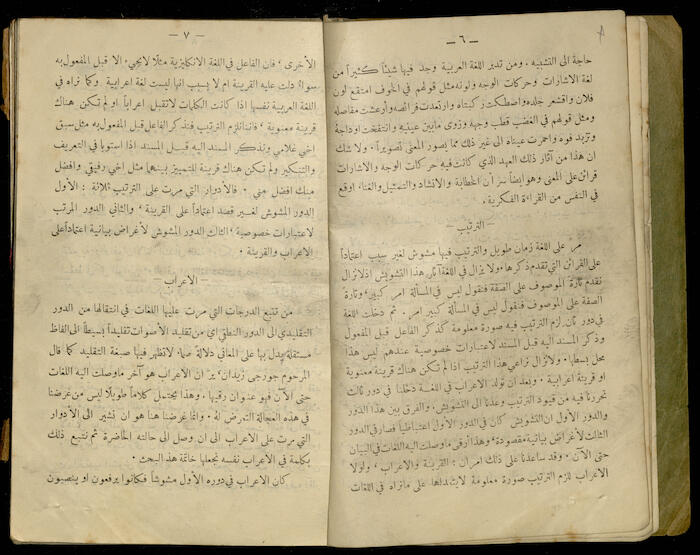 — ٦ —
حاجة الى التشبيه . ومن تدبر اللغة العربية وجد فيها شيئاً كثيراً من
لغة الاشارات وحركات الوجه ولونه مثل قولهم في الخوف امتقع لون
فلان واقشعر جلده واصطكت ركبتاه وارتعدت فرائصه وأرعشت مفاصله
ومثل قولهم في الغضب قطب وجهه وزوى مابين عينيه وانتفخت اوداجه
وتزبد فوه واحمرت عيناه الى غير ذلك مما يصور المعنى تصويراً . ولا شك
ان هذا من آثار ذلك العهد الذي كانت فيه حركات الوجه والاشارات
قرائن على المعنى وهو ايضاً سر أن الخطابة والانشاد والتمثيل والغناء اوقع
في النفس من القراءة الفكرية .
— الترتيب —
مر على اللغة زمان طويل والترتيب فيها مشوش لغير سبب اعتماداً
على القرائن التي تقدم ذكرها ولا يزال في اللغة آثار هذا التشويش اذ لا نزال
نقدم تارة الموصوف على الصفة فنقول ليس في المسألة امر كبير وتارة
الصفة على الموصوف فنقول ليس في المسألة كبير امر . ثم دخلت اللغة
في دور ثان لزم الترتيب فيه صورة معلومة كذكر الفاعل قبل المفعول
وذكر المسند اليه قبل المسند لاعتبارات خصوصية عندهم ليس هذا
محل بسطها . ولا نزال نراعي هذا الترتيب اذا لم تكن هناك قرينة معنوية
او قرينة اعرابية . وبعد ان تولد الاعراب في اللغة دخلنا في دور ثالث
تحررنا فيه من قيود الترتيب وعدنا الى التشويش . والفرق بين هذا الدور
والدور الاول ان التشويش كان في الدور الأول اعتباطياً فصار في الدور
الثالث لأغراض بيانية مقصودة وهذا أرقى ماوصلت اليه اللغات في البيان
حتى الآن . وقد ساعدنا على ذلك امران : القرينة والاعراب ، ولولا
الاعراب للزم الترتيب صورة معلومة لا يتعداها على مانراه في اللغات
— ٧ —
الأخرى ، فان الفاعل في اللغة الانكليزية مثلاً لا يجيء الا قبل المفعول به
سواء دلت عليه القرينة ام لا بسبب انها ليست لغة اعرابية . وكما نراه في
اللغة العربية نفسها اذا كانت الكلمات لا تقبل اعراباً او لم تكن هناك
قرينة معنوية ، فاننا نلزم الترتيب فنذكر الفاعل قبل المفعول به مثل سبق
اخي غلامي ونذكر المسند اليه قبل المسند اذا استويا في التعريف
والتنكير ولم تكن هناك قرينة للتمييز بينهما مثل اخي رفيقي وافضل
منك افضل مني . فالادوار التي مرت على الترتيب ثلاثة : الأول
الدور المشوش لغير قصد اعتماداً على القرينة ، والثاني الدور المرتب
لاعتبارات خصوصية ، الثالث الدور المشوش لأغراض بيانية اعتماداً على
الاعراب والقرينة .
— الاعراب —
من تتبع الدرجات التي مرت عليها اللغات في انتقالها من الدور
التقليدي الى الدور النطقي اي من تقليد الأصوات تقليداً بسيطاً الى الفاظ
مستقلة يدل بها على المعاني دلالة صماء لا تظهر فيها صبغة التقليد كما قال
المرحوم جورجي زيدان ير ان الاعراب هو آخر ماوصلت اليه اللغات
حتى الآن فهو عنوان رقيها . وهذا يحتمل كلاماً طويلاً ليس من غرضنا
في هذه العجالة التعرض له . وانما غرضنا هنا هو ان نشير الى الأدوار
التي مرت على الاعراب الى ان وصل الى حالته الحاضرة ثم نتبع ذلك
بكلمة في الاعراب نفسه نجعلها خاتمة هذا البحث .
كان الاعراب في دوره الأول مشوشاً فكانوا يرفعون او ينصبون